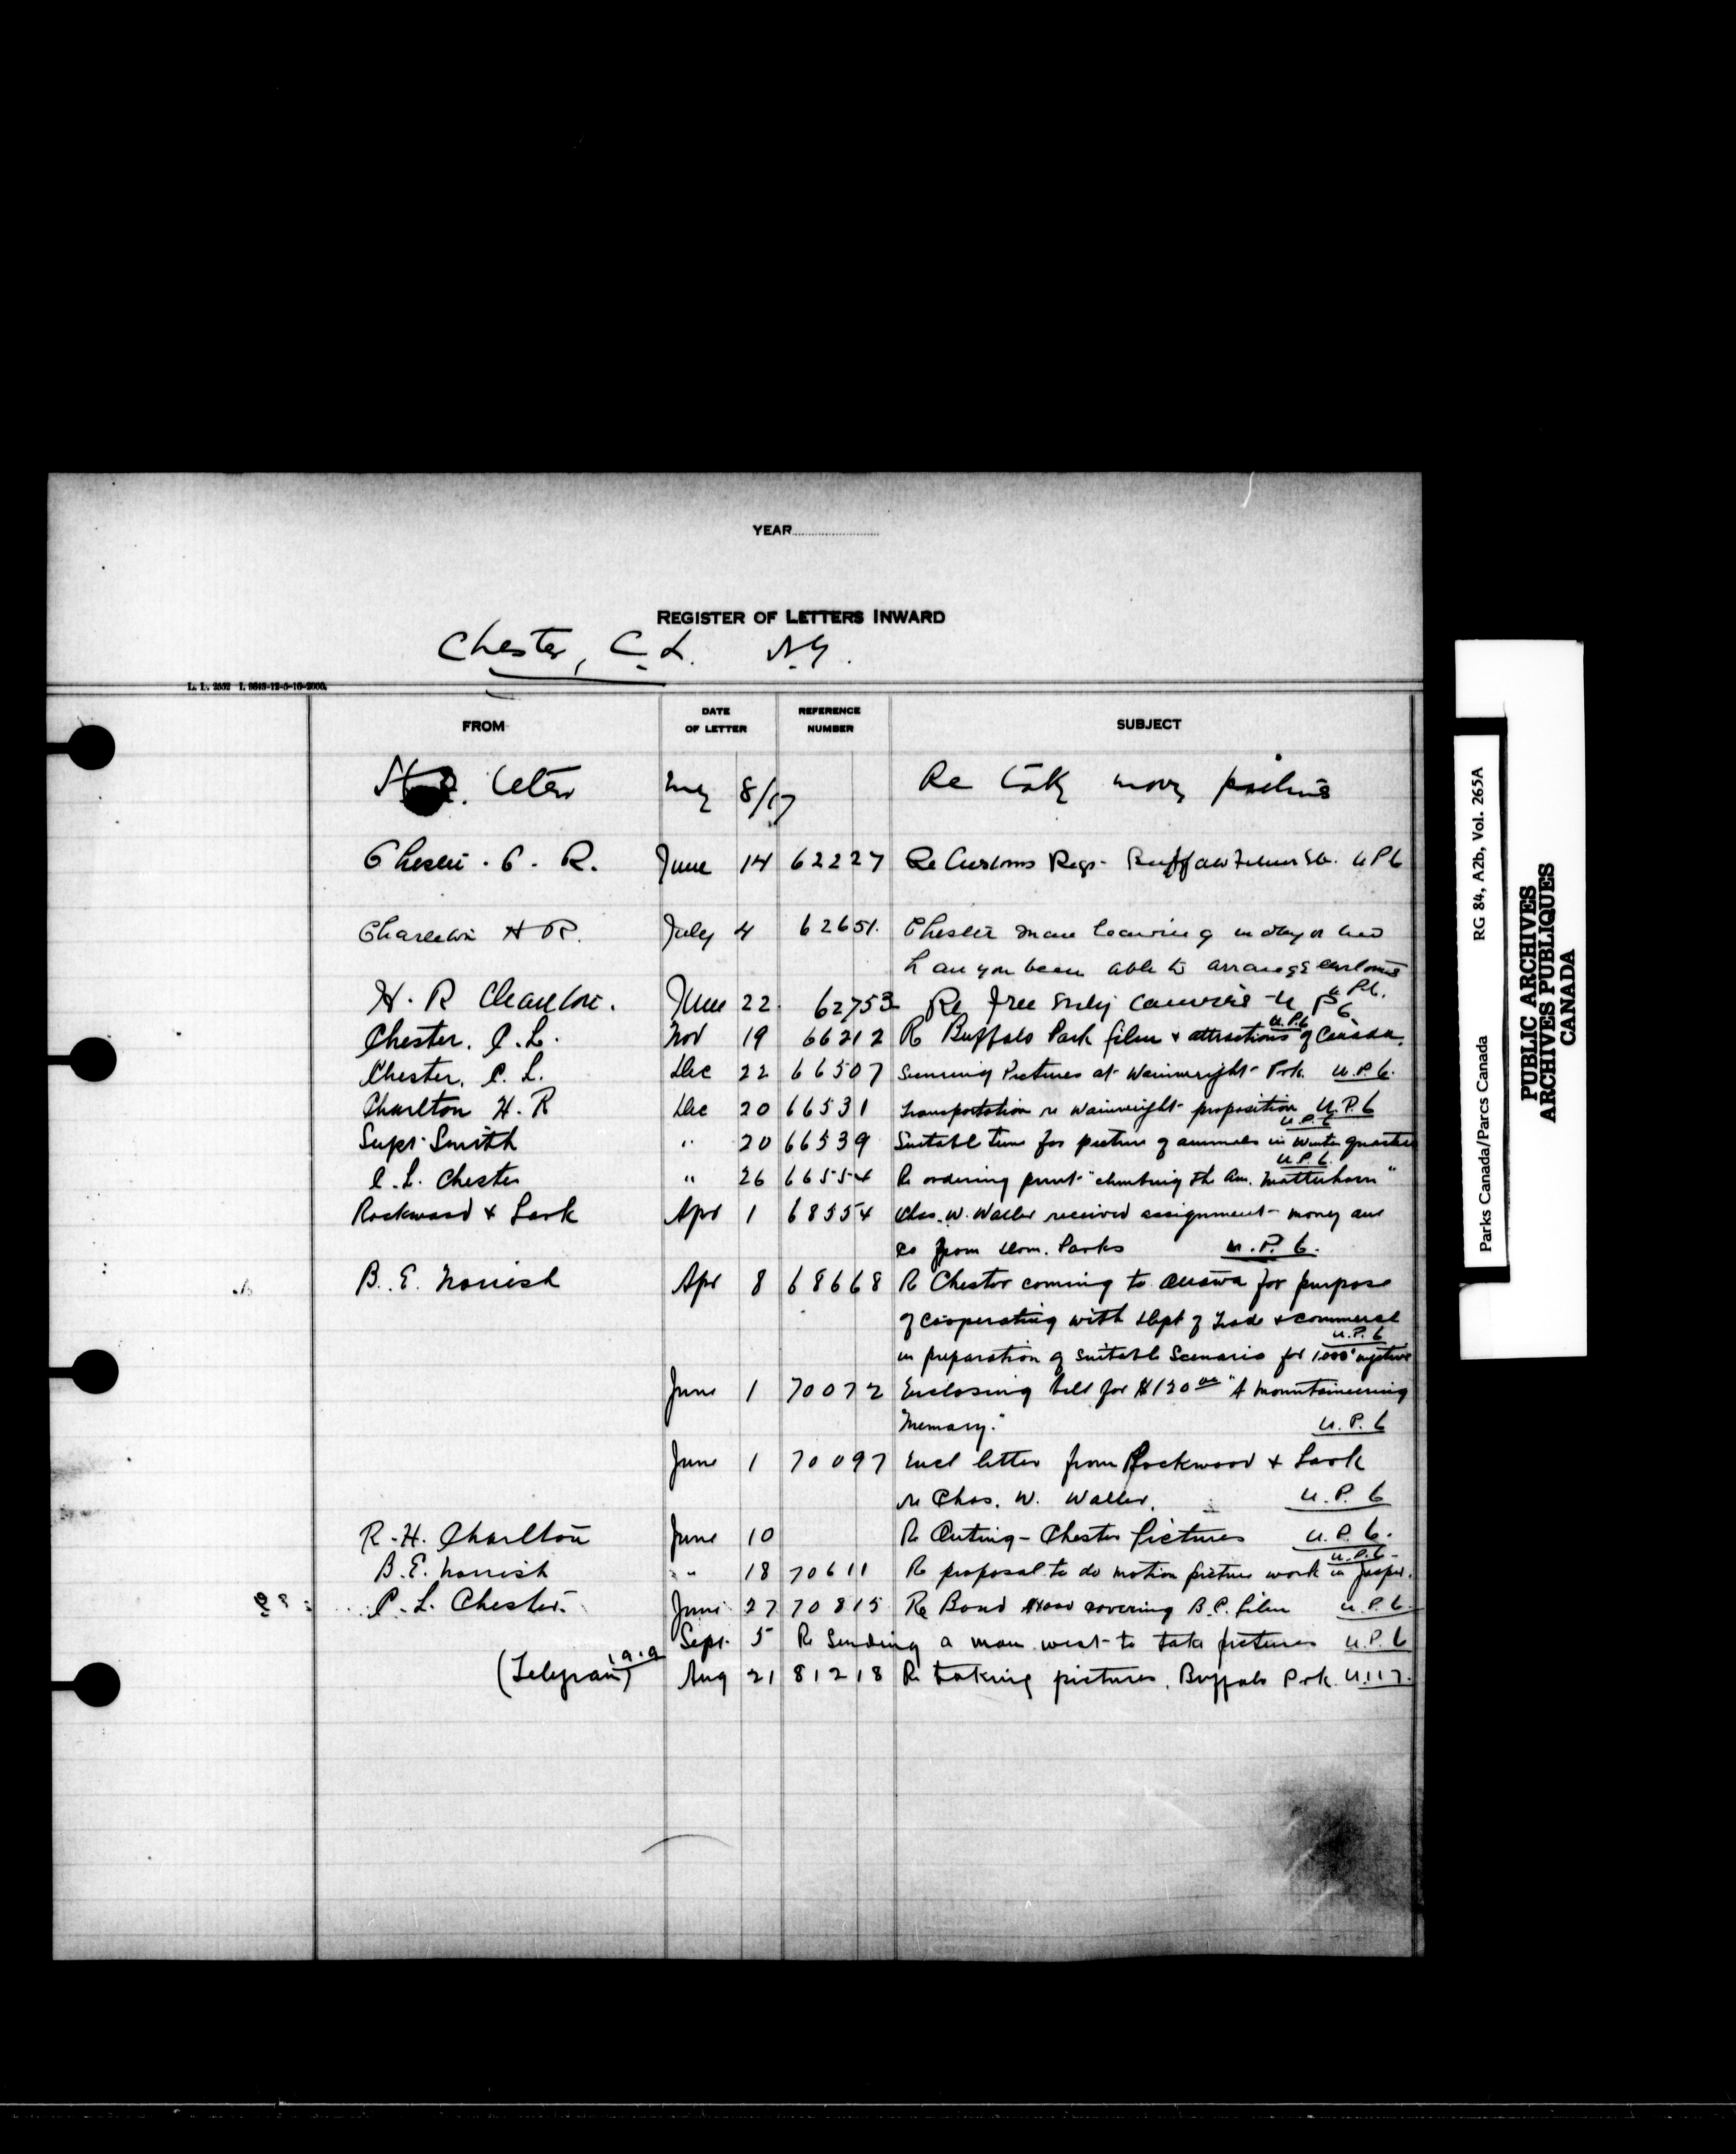 YEAR
REGISTER OF LETTERS INWARD
Chester, C. L. N.Y.
FROM DATE OF LETTER REFERENCE NUMBER SUBJECT
May 8/17 Re
June 14 62227 Re Customs Regs - U P 6
July 4 62651.
Have you been able to arrange customs
U.P.6.
H. R June 22. 62753 Re free U P 6
U.P.6
Chester. C. L. Nov 19 66212 Re Buffalo Park film & attractions of Canada.
Chester. C. L. Dec 22 66507 Pictures at Wainwright Prk. U.P.6.
Charlton H. R Dec 20 66531 Transportation re Wainwright proposition U.P.6
U.P.6
Supt Smith " 20 66539 Suitable time for picture of animals in Winter quarters
U.P.6.
C. L. Chester " 26 66554 Re ordering print "climbing the Am. Matterhorn"
Rockwood & Lark Apr 1 68554 Chas. W. Waller received assignment money due
Co from Dom. Parks U.P.6.
B. E. Norrish Apr 8 68668 Re Chester coming to Ottawa for purpose
of cooperating with Dept of Trade & Commerce
U.P.6
in preparation of suitable Scenario for 1000' negative
June 1 70072 Enclosing bill for $120 00 "A Mountaineering
Memory." U.P.6
June 1 70097 Encl letter from Rockwood & Lark
re Chas. W. Waller. U.P.6
R. H. Charlton June 10 Re Outing-Chester Pictures U.P.6.
U.P.6
B. E. Norrish " 18 70611 Re proposal to do motion picture work in Jasper.
C. L. Chester. June 27 70815 Re Bond covering B.C. film U.P.6.
Sept. 5 Re Sending a man west to take pictures U.P.6
1919
(Telegram) Aug 21 81218 Re taking pictures, Buffalo Prk. U.117.
Parks Canada/Parcs Canada RG 84, A2b, Vol. 265A
PUBLIC ARCHIVES
ARCHIVES PUBLIQUES
CANADA